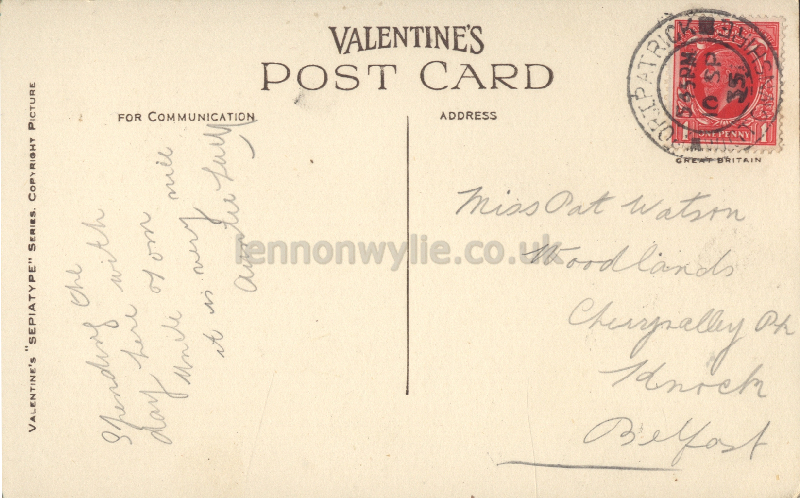 VALENTINE'S
POST CARD
FOR COMMUNICATION
ADDRESS
VALENTINE'S "SEPIATYPE" SERIES. COPYRIGHT PICTURE
Spending the
day here with
Uncle Tom
it is very
Auntie
PORTPATRICK
3 45 PM
10 SP
35
ONE PENNY
GREAT BRITAIN
Miss Pat Watson
Woodlands
Cherryvalley Pk
Knock
Belfast
lennonwylie.co.uk